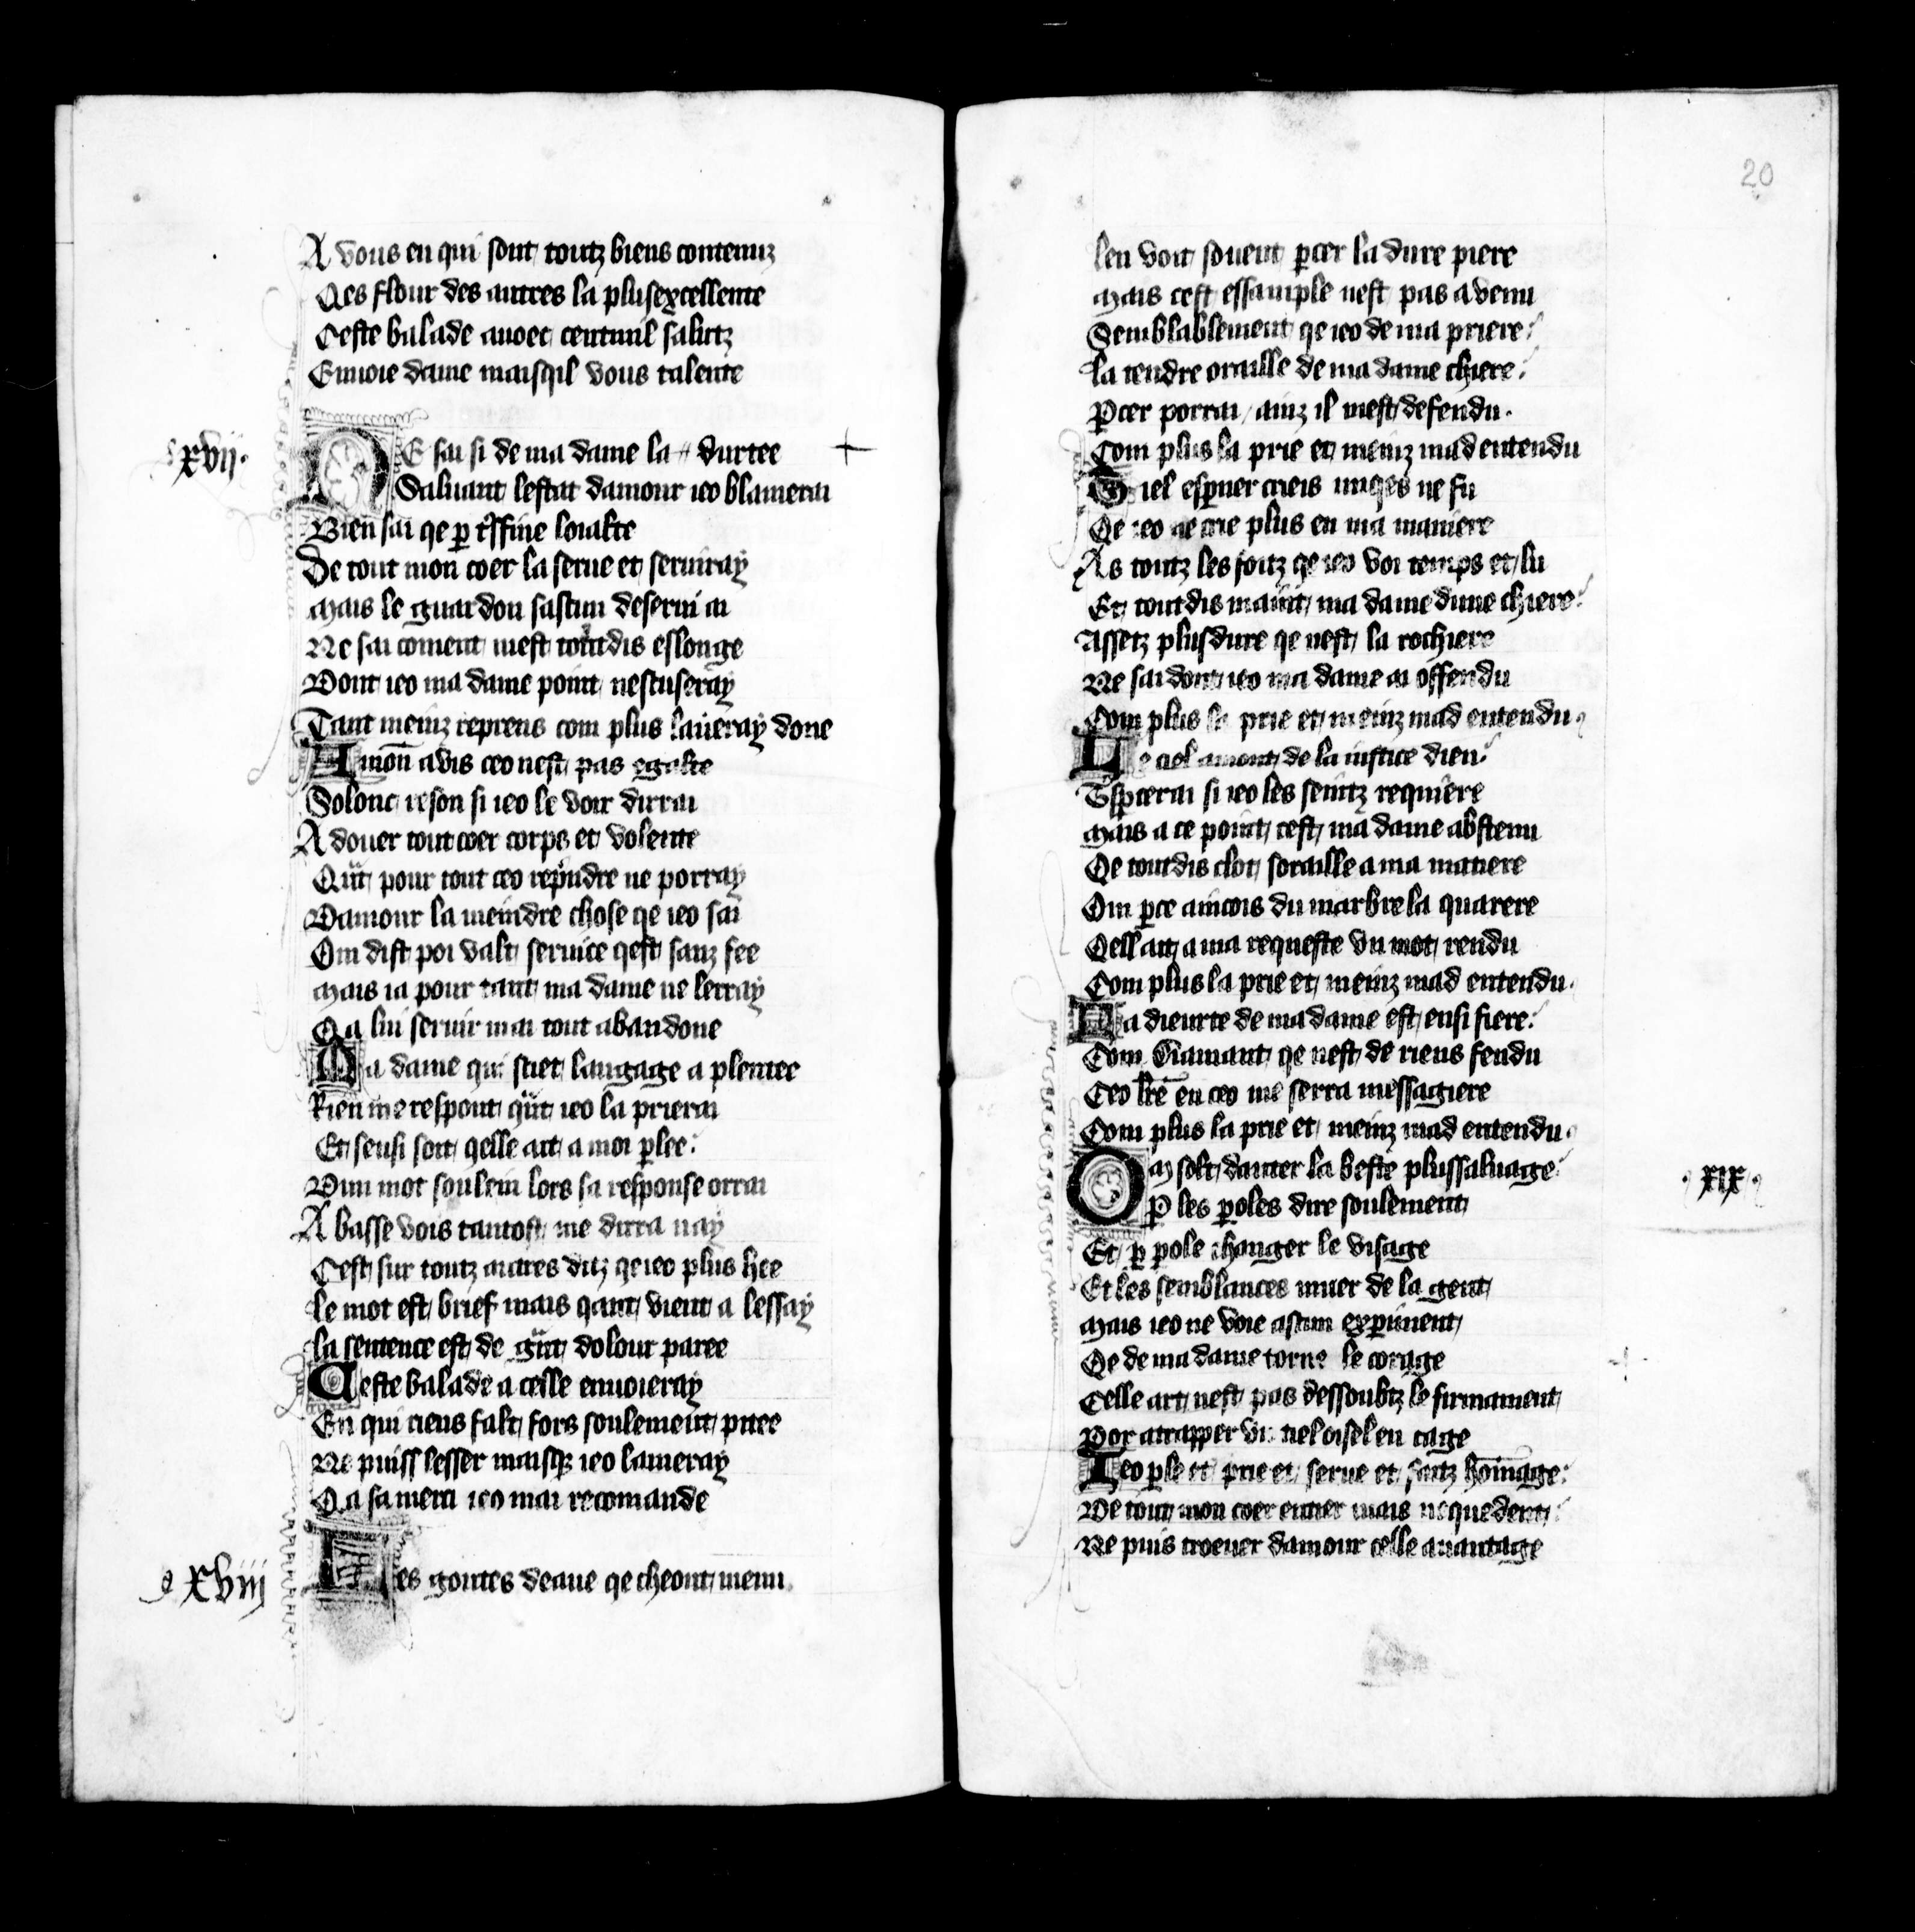 A vous en qui sont toutz biens contenuz
Qes flour des autres la plusexcellente
Ceste balade avoec centmil salutz
Envoie dame maisqil vous talente
xvij.
NE sai si de ma dame la durtee
Salvant lestat damour ieo blamerai
Bien sai qe p tsfine loialte
De tout mon coer la serve et serviray
Mais le guardon sascun deservi ai
Ne sai coment mest toutdis eslonge
Dont ieo ma dame point nescuseray
Tant meinz reprens com plus laveray done
A mon avis ceo nest pas egalte
Solonc reson si ieo le voir dirrai
A doner tout coer corps et volente
Qnt pour tout ceo repndre ne porray
Damour la meindre chose qe ieo sai
Om dist poi valt service qest sanz fee
Mais ia pour tant ma dame ne lerray
Qa lui servir mai tout abandone
Ma dame qui sciet langage a plentee
Rien me respont qnt ieo la prierai
Et sensi soit qelle ait a moi plee
Dun mot soulein lors sa response orrai
A basse vois tantost me dirra nay
Cest sur toutz autres ditz qe ieo plus hee
Le mot est brief mais qant vient a lessay
La sentence est de gnt dolour paree
Ceste balade a celle envoieray
En qui riens falt fors soulement pitee
Ne puiss lesser maisqe ieo lameray
Qa sa merci ieo mai recomande
xviij
Les goutes deaue qe cheont menu
20
Len voit sovent pcer la dure piere
Mais cest essample nest pas avenu
Semblablement qe ieo de ma priere
La tendre oraille de ma dame chiere
Pcer porrai ainz il mest defendu.
Com plus la prie et meinz mad entendu
Tiel espver crieis unqes ne fu
Qe ieo ne crie plus en ma maniere
As toutz les foitz qe ieo voi temps et lu
Et toutdis maint ma dame dune chiere
Assetz plusdure qe nest la rochiere
Ne sai dont ieo ma dame ai offendu
Com plus la prie et meinz mad entendu
Le ciel amont de la iustice dieu
Tspcerai si ieo les seintz requiere
Mais a ce point cest ma dame abstenu
Qe toutdis clot soraille a ma matiere
Om pce aincois du marbre la quarere
Qell ait a ma requeste un mot rendu
Com plus la prie et meinz mad entendu.
La dieurte de ma dame est ensi fiere
Com Diamant qe nest de riens fendu
Ceo lre en ceo me serra messagiere
Com plus la prie et meinz mad entendu
Om solt danter la beste plussalvage
P les poles dire soulement
xix
Et p pole changer le visage
Et les semblances muer de la gent
Mais ieo ne voie ascun expiment
Qe de ma dame torne le corage
Celle art nest pas dessoubtz le firmament
Por atrapper un tiel oisel en cage
Ieo ple et prie et serve et faitz homage
De tout mon coer entier mais nequedent
Ne puis troever damour celle avantage